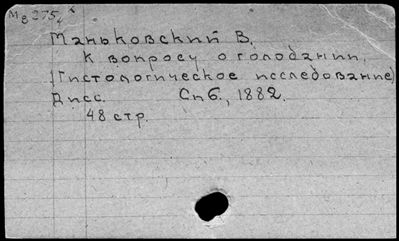 М8275
Маньковский В.
К вопросу о голодании.
(Гистологическое исследование)
Дисс. Спб., 1882.
48 стр.